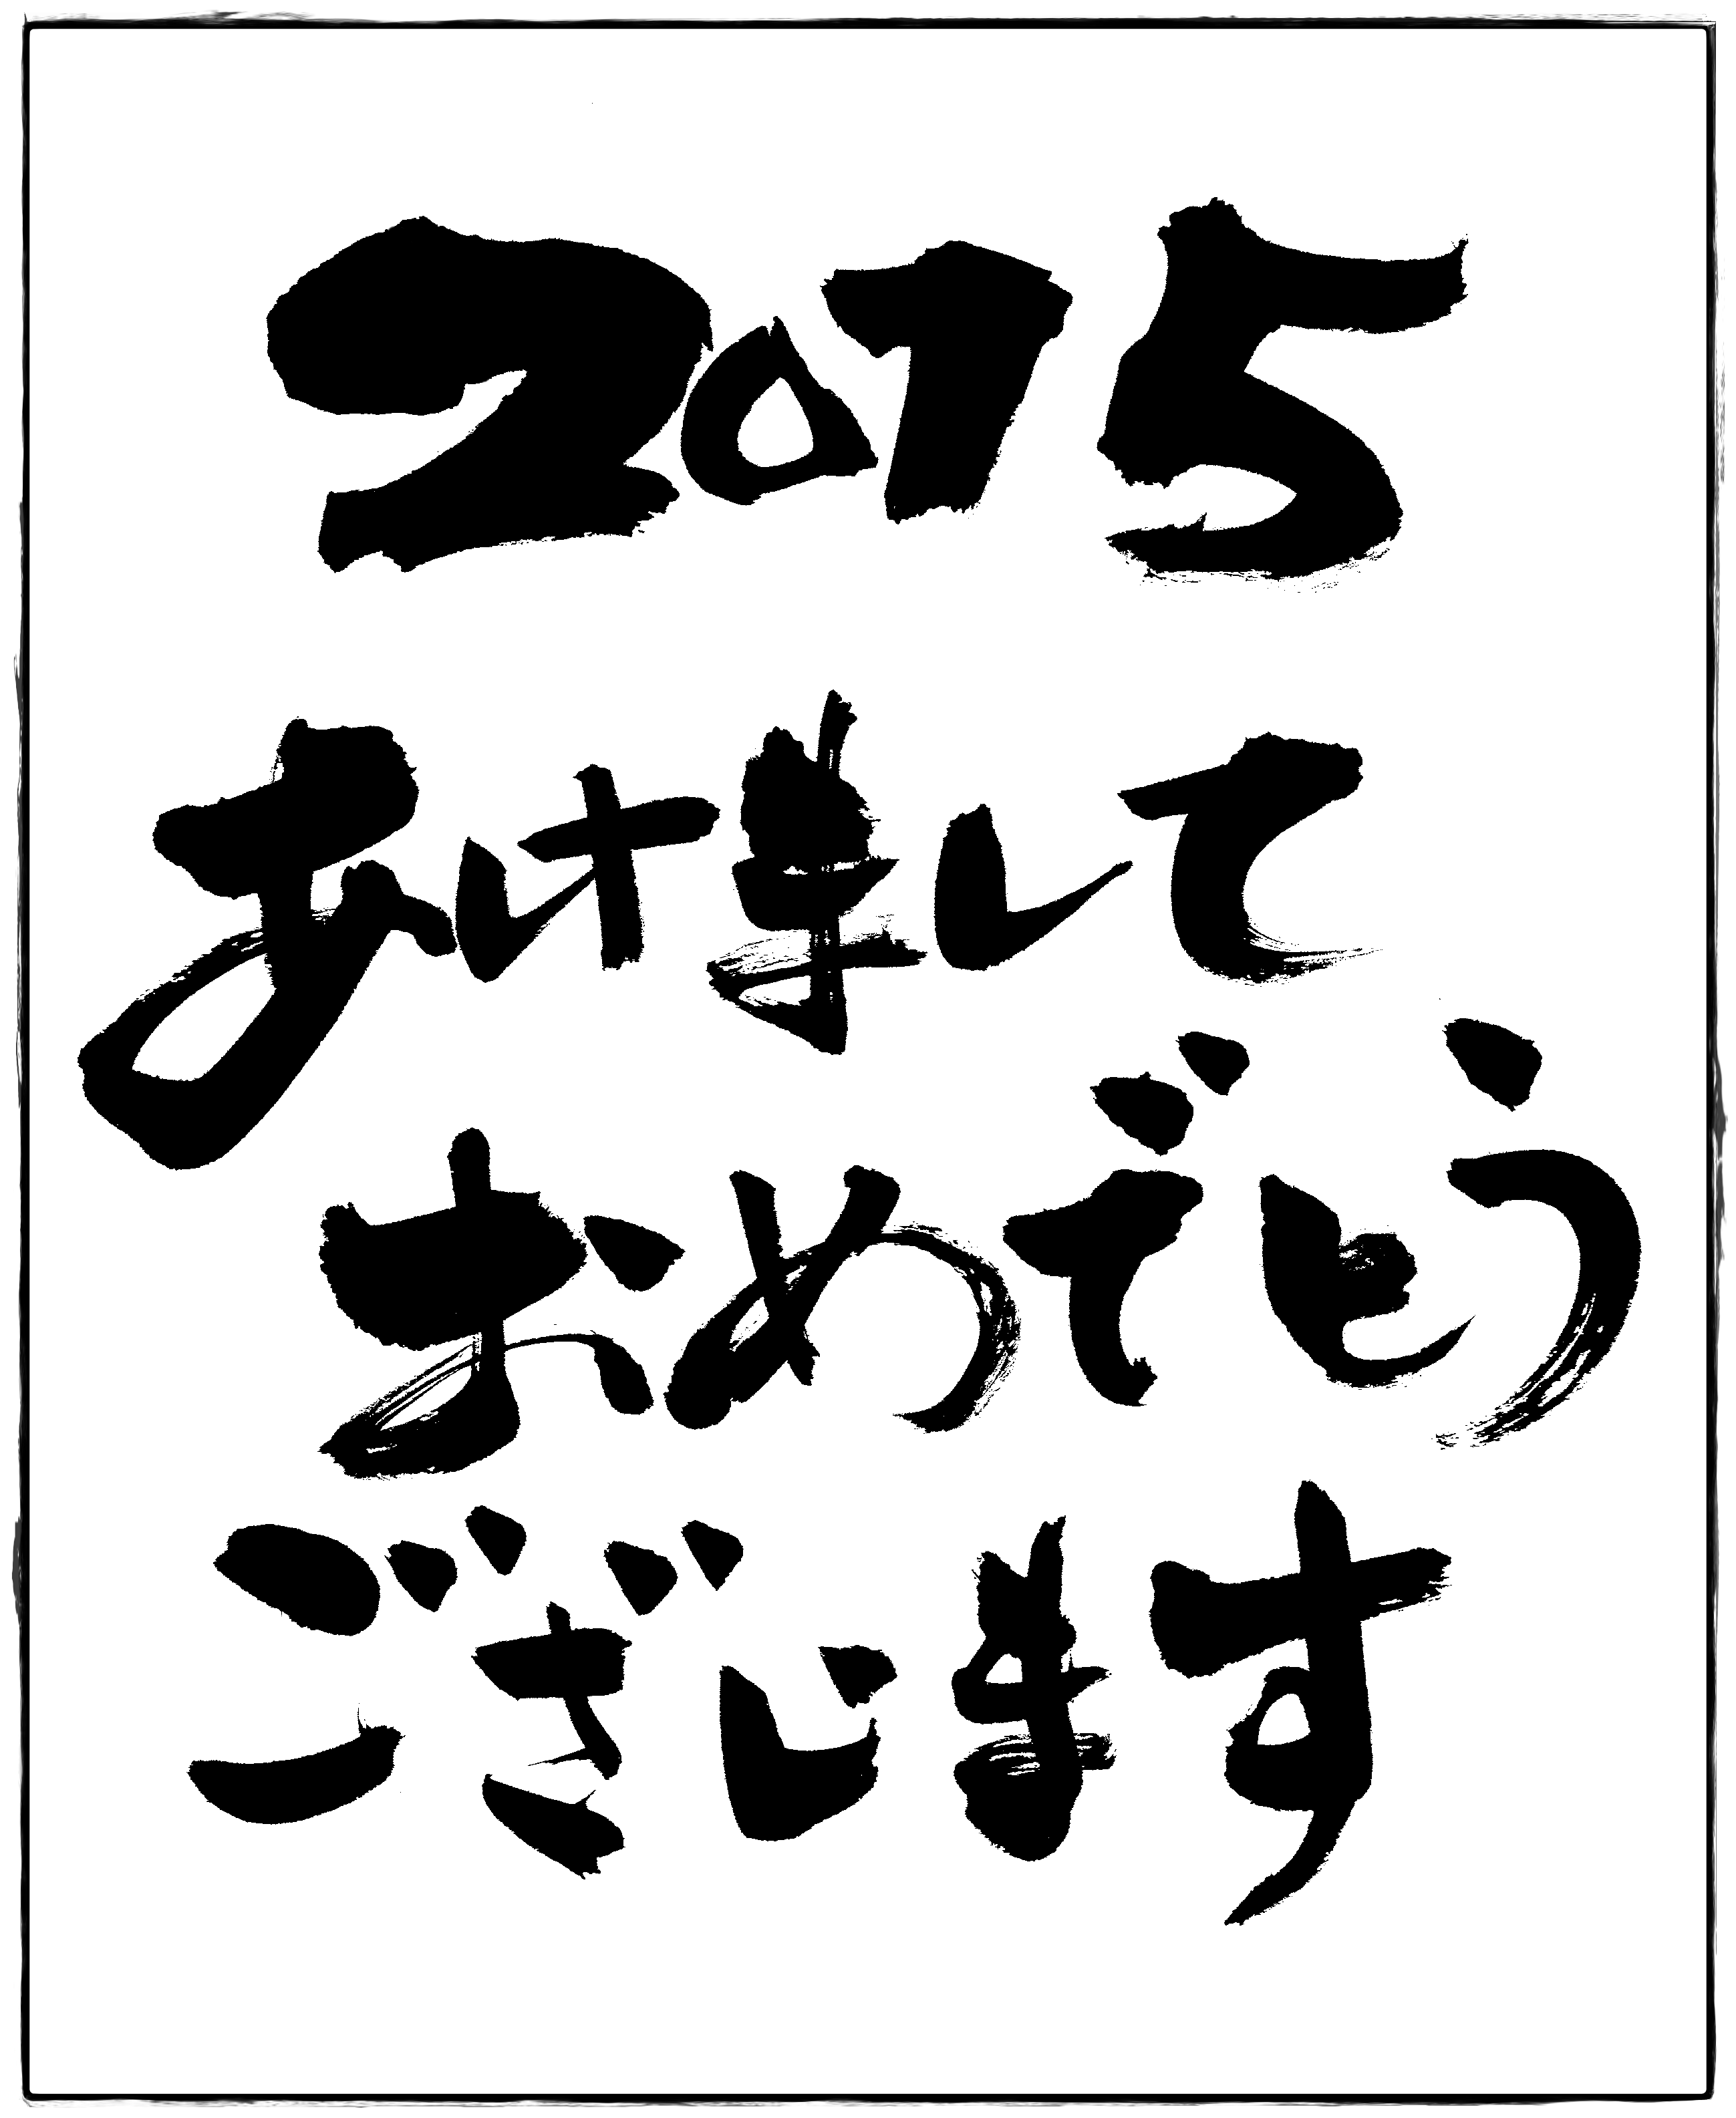 2015
あけまして
おめでとう
ございます